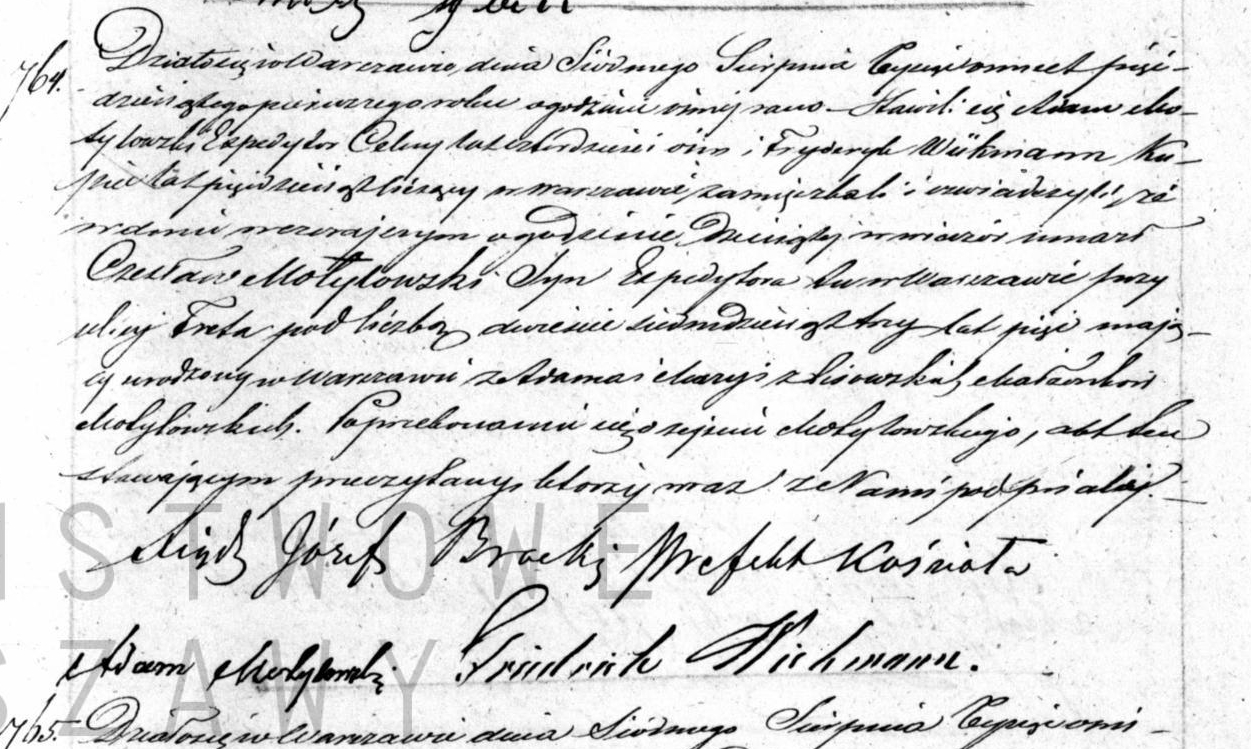 764. Działo się w Warszawie, dnia Siódmego Sierpnia Tysiąc ośmset pięć-
dziesiątego pierwszego roku o godzinie ósmej rano – Stawili się Adam Mo-
tylowski Expedytor Celny lat czterdzieści ośm i Fryderyk Wichmann Ku-
piec lat pięćdziesiąt liczący w Warszawie zamieszkali i oświadczyli, że
w dniu wczorajszym o godzinie Dziewiątej wieczór umarł
Czesław Motylowski Syn Expedytora tu w Warszawie przy
ulicy Freta pod liczbą dwieście siedmdziesiąt trzy lat pięć mają-
cy urodzony w Warszawie z Adama i Maryi z Lisowskich Małżonków
Motylowskich. Po przekonaniu się o zejściu Motylowskiego, akt ten
stawającym przeczytany, którzy wraz z Nami podpisali.
Xiądz Józef Brocki Prefekt Kościoła
Adam Motylowski Friedrich Wichmann.
765. Działo się w Warszawie dnia Siódmego Sierpnia Tysiąc ośm-
STWOWE
SZAWY